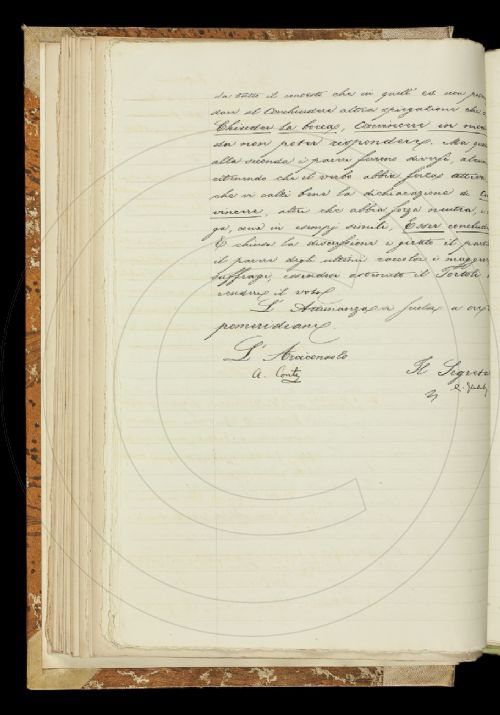 da tutto il contesto che in quell' es. non può
dare al Conchiudere altra spiegazione che
Chiuder la bocca, Convincere in modo
da non poter rispondere. Ma
alla seconda i pareri furono diversi, alcuni
che il verbo abbia forza attiva
che vi calzi bene la dichiarazione di
vincere, altri che abbia forza neutra,
ga, come in esempj simili, Esser
È chiusa la discussione e girato il partito
il parere degli ultimi raccolse i maggiori
suffragi, essendosi astenuto il Tortoli
rendere il voto.
L' Adunanza è sciolta a ore
pomeridiane
L' Arciconsolo
A. Conti
Il Segreta